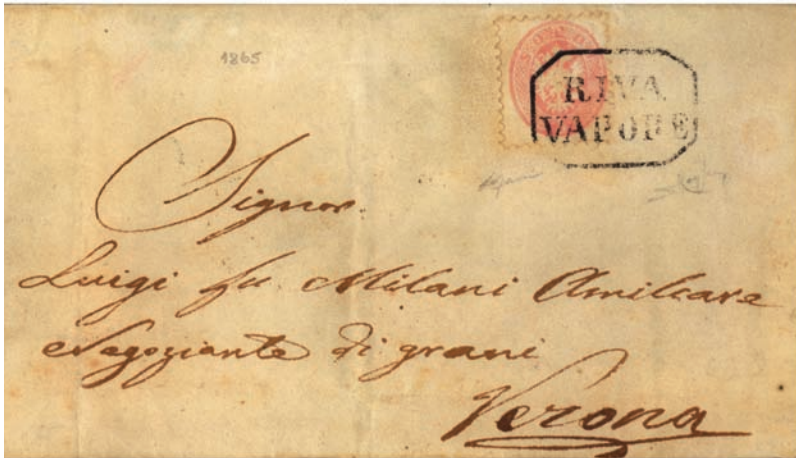 1865
RIVA
VAPORE
Signor
Luigi fu Milani Amilcare
Negoziante di grani
Verona